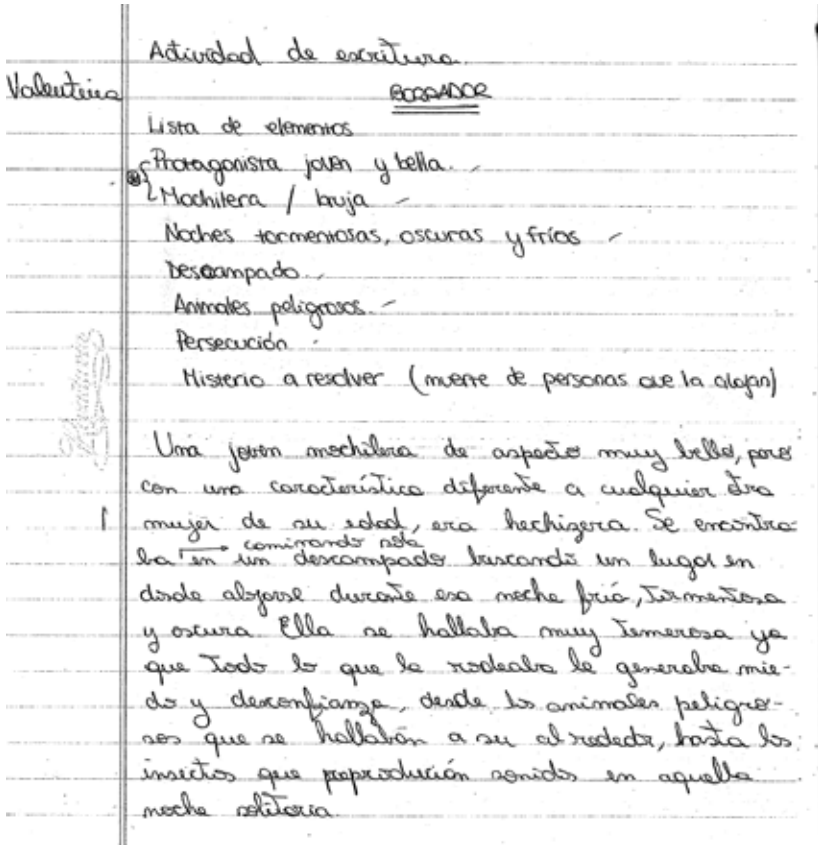 Actividad de escritura
Valentina
BORRADOR
Lista de elementos
Protagonista joven y bella.
Mochilera / bruja
Noches tormentosas, oscuras y fríos
Descampado.
Animales peligrosos.
Persecución
Misterio a resolver (muerte de personas que la alojan)
Una joven mochilera de aspecto muy bello, pero
con una característica diferente a cualquier otra
mujer de su edad, era hechizera. Se encontra
caminando sola
ba en un descampado buscando un lugar en
donde alojarse durante esa noche fría, tormentosa
y oscura Ella se hallaba muy temerosa ya
que todo lo que la rodeaba le generaba mie-
do y desconfianza, desde los animales peligro-
sos que se hallaban a su alrededor, hasta los
insectos que preproducían sonidos en aquella
noche solitaria